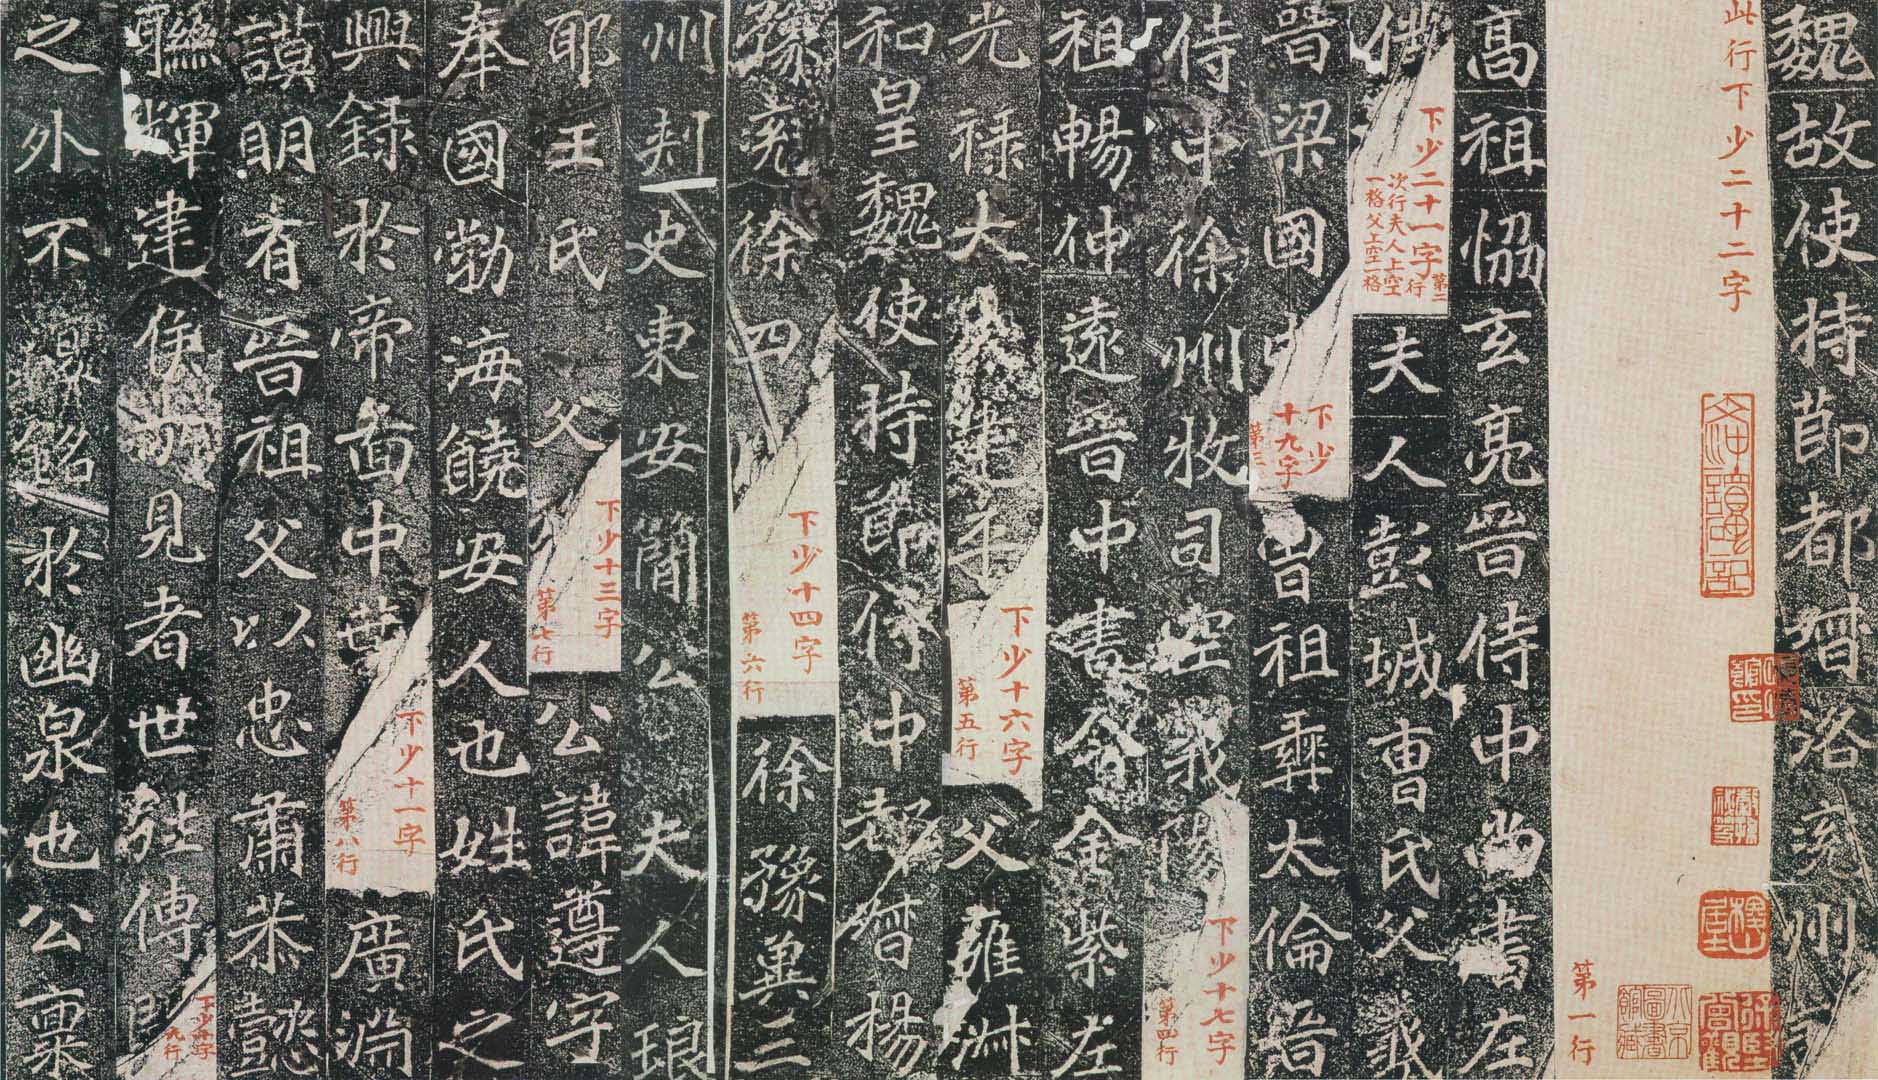 魏故使持節都督洛兗州諸
此行下少二十二字
第一行
高祖協玄亮晉侍中尚書左
僕
下少二十一字
第二行
次行夫人上空一格父上空一格
夫人彭城曹氏父羲
晉梁國中
下少十九字
第三
曾祖彝太倫晉
侍中徐州牧司空羲陽
下少十七字
第四行
祖暢仲遠晉中書令金紫左
光祿大夫建平
下少十六字
第五行
父雍淑
和皇魏使持節侍中都督楊
豫兗徐四州
下少十四字
第六行
徐豫冀三
州刺史東安簡公夫人琅
耶王氏父
下少十三字
第七行
公諱遵字
奉國勃海饒安人也姓氏之
興錄於帝啚中葉
下少十一字
第八行
廣淵
謨明有晉祖父以忠肅恭懿
聯輝建侯見者世傳
九行
之外不復銘於幽泉也公稟